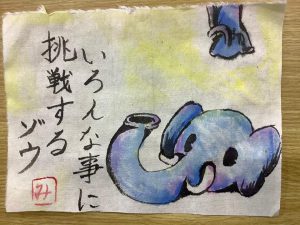 いろんな事に
挑戦する
ゾウ
み